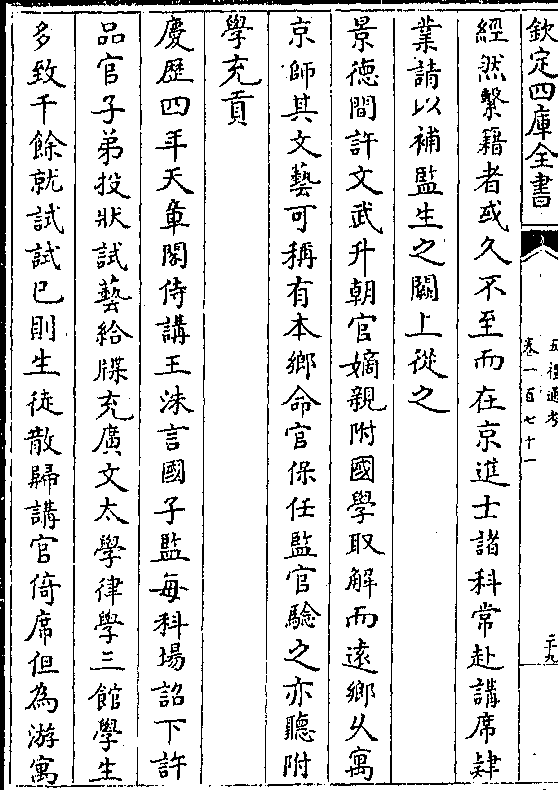 欽定四庫全書
五禮通考
卷一百七十一
二十九
經然繫籍者或久不至而在京進士諸科常赴講席肄
業請以補監生之闕上從之
景德間許文武升朝官嫡親附國學取解而遠鄉久寓
京師其文藝可稱有本鄉命官保任監官驗之亦聽附
學充貢
慶歴四年天章閣侍講王洙言國子監每科塲詔下許
品官子弟投狀試藝給牒充廣文太學律學三館學生
多致千餘就試試已則生徒散歸講官倚席但為游寓